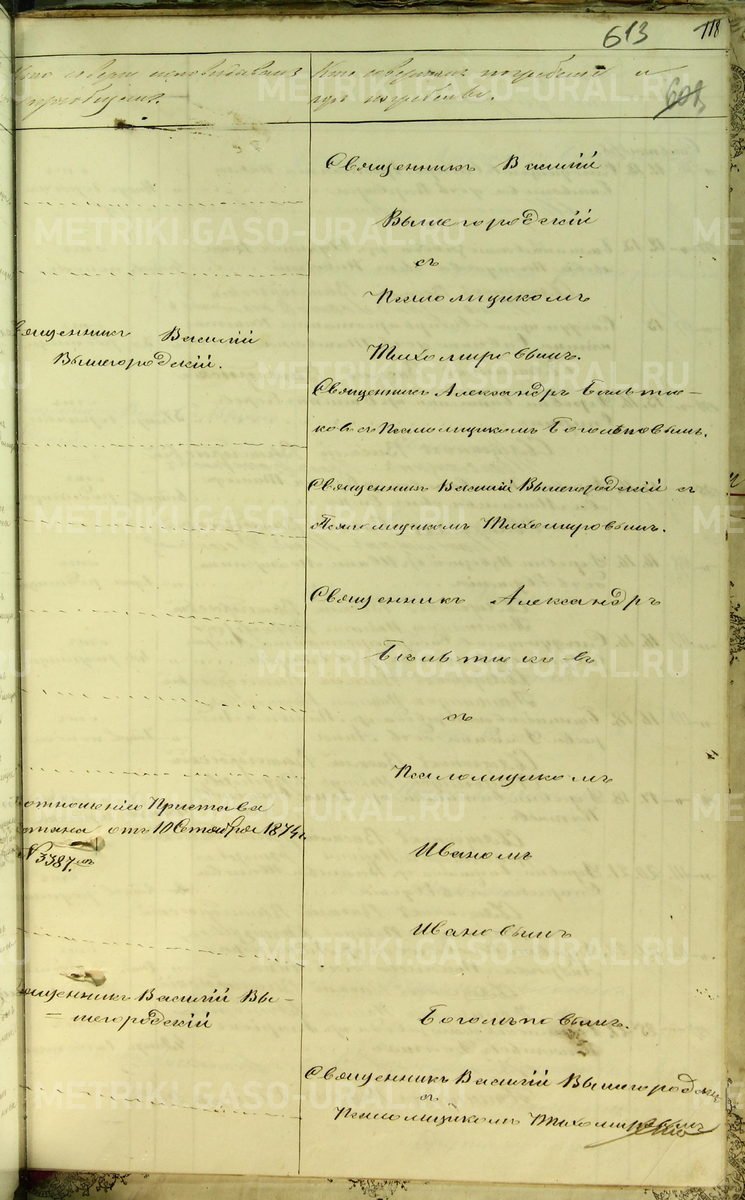 613
118
601
Кто совершал погребение и
гдѣ погребены.
Священникъ Василій
Вышегородскій
съ
Псаломщикомъ
Тихомировымъ.
Священникъ Василій
Вышегородскій.
Священникъ Александръ
съ Псаломщикомъ Боголѣповымъ.
Священникъ Василій Вышегородскій съ
Псаломщикомъ Тихомировымъ.
Священникъ Александръ
съ
Псаломщикомъ
отношенію Пристава
отъ 10 1874 г.
№ 3387.
Иваномъ
Ивановымъ
Священникъ Василій Вы-
шегородскій
Боголѣповымъ.
Священникъ Василій Вышегородскій
съ
Псаломщикомъ Тихомировымъ
METRIKI.GASO-URAL.RU